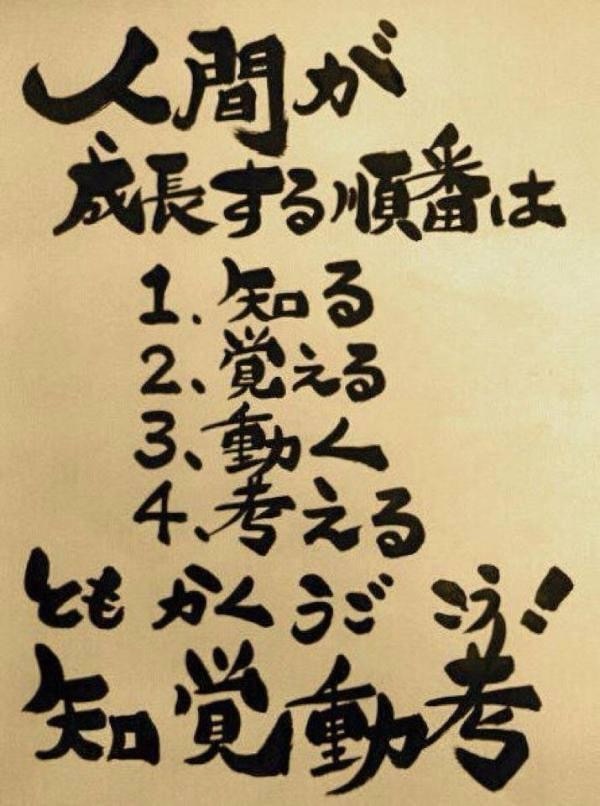 人間が
成長する順番は
1、知る
2、覚える
3、動く
4、考える
ともかくうごこう!
知覚動考